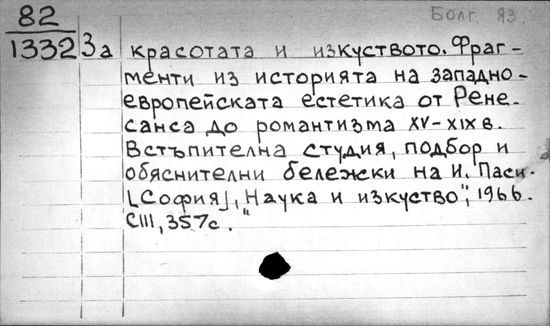 82
Болг. яз.
1332 За красотата и изкуството. Фраг-
менти из историята на западно-
европейската естетика от Рене-
санса до романтизма XV-XIX в.
Встъпителна студия, подбор и
обяснителни бележки на И. Паси.
[София], „Наука и изкуство“, 1966.
CIII, 357 с.